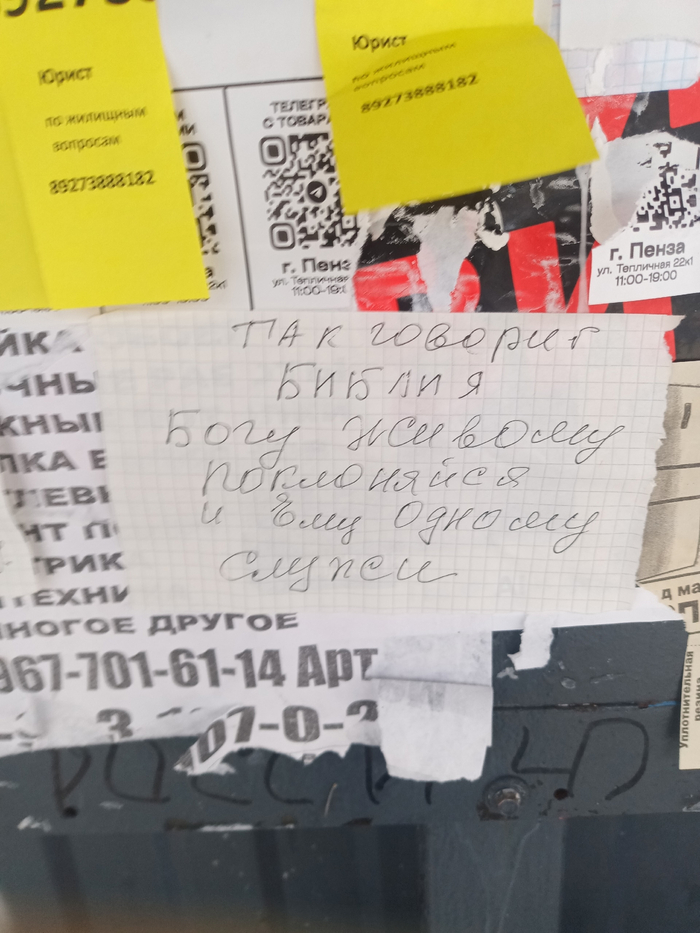 Юрист
по жилищным
вопросам
89273888182
Юрист
по жилищным
вопросам
89273888182
ТЕЛЕГР
С ТОВАР
г. Пенз
ул. Тепличная
11:00-19:
г. Пенза
ул. Тепличная 22к1
11:00-19:00
ТАК говорит
БИБЛИЯ
Богу живому
поклоняйся
и Ему одному
служи
ЙКА
ЧНЫ
ЖНЫ
ПКА В
ЛЕВ
НТ П
ТРИК
ТЕХНИ
НОГОЕ ДРУГОЕ
967-701-61-14 Арт
07-0-2
Уплотнительная
резина